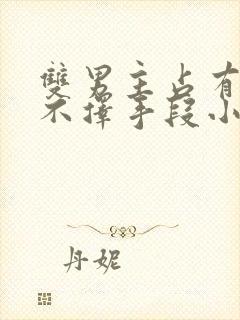 雙男主占有
不擇手段小
丹妮